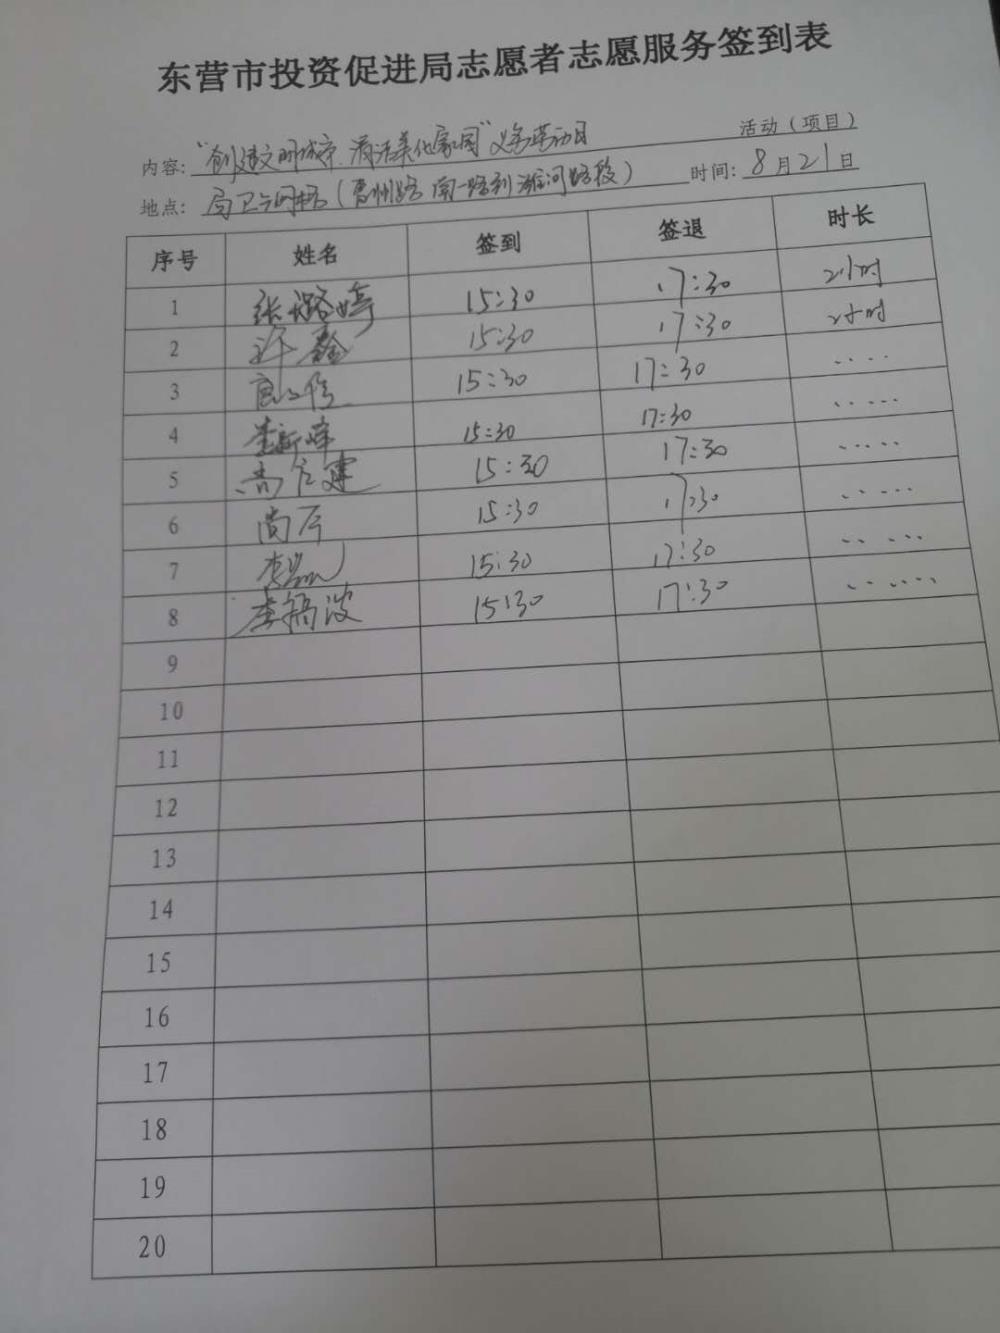 东营市投资促进局志愿者志愿服务签到表
内容: "创建文明城市 清洁美化家园"义务劳动日 活动（项目）
地点: 局卫生网格（曹州路 南一路到淮河路段） 时间: 8月21日
序号 姓名 签到 签退 时长
1 张璐婷 15:30 17:30 2小时
2 许鑫 15:30 17:30 2小时
3 15:30 17:30 ....
4 李新峰 15:30 17:30 .....
5 尚官建 15:30 17:30 .....
6 尚斤 15:30 17:30 .....
7 李 15:30 17:30 .....
8 李福波 15:30 17:30 ......
9
10
11
12
13
14
15
16
17
18
19
20